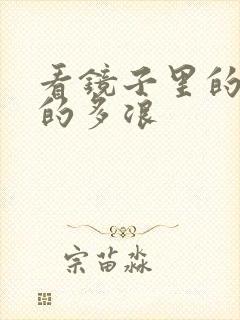 看镜子里的
的多浪
宗苗淼